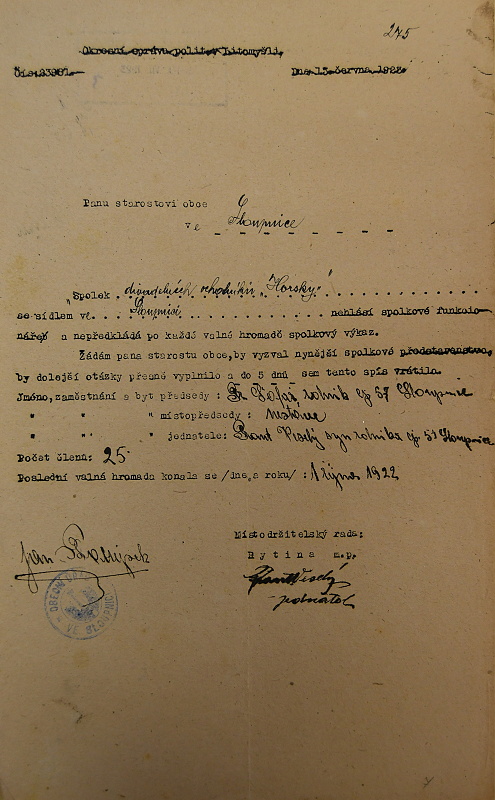 275
Okresní správa polit.v Litomyšli,
Čís.23991.
Dne 13.června 1922.
Panu starostovi obce
ve Sloupnice
"Spolek divadelních ochotníků „Horský"
se sídlem ve Sloupnici nehlásí spolkové funkcio-
nářeř a nepředkládá po každé valné hromadě spolkový výkaz.
Žádám pana starostu obce,by vyzval nynější spolkové představenstvo,
by dolejší otázky přesně vyplnilo a do 5 dnů sem tento spis vrátilo.
Jméno,zaměstnání a byt předsedy : rolník čp 57 Sloupnice
" " " místopředsedy :
" " " jednatele: Frant Veselý syn rolníka čp 51 Sloupnice
Počet členů: 25
Poslední valná hromada konala se /dne,a roku/ : 1 října 1922
Místodržitelský rada:
Rytina m.p.
Jan
Frant Veselý
jednatel
OBECNÍ ÚŘAD
VE SLOUPNICI